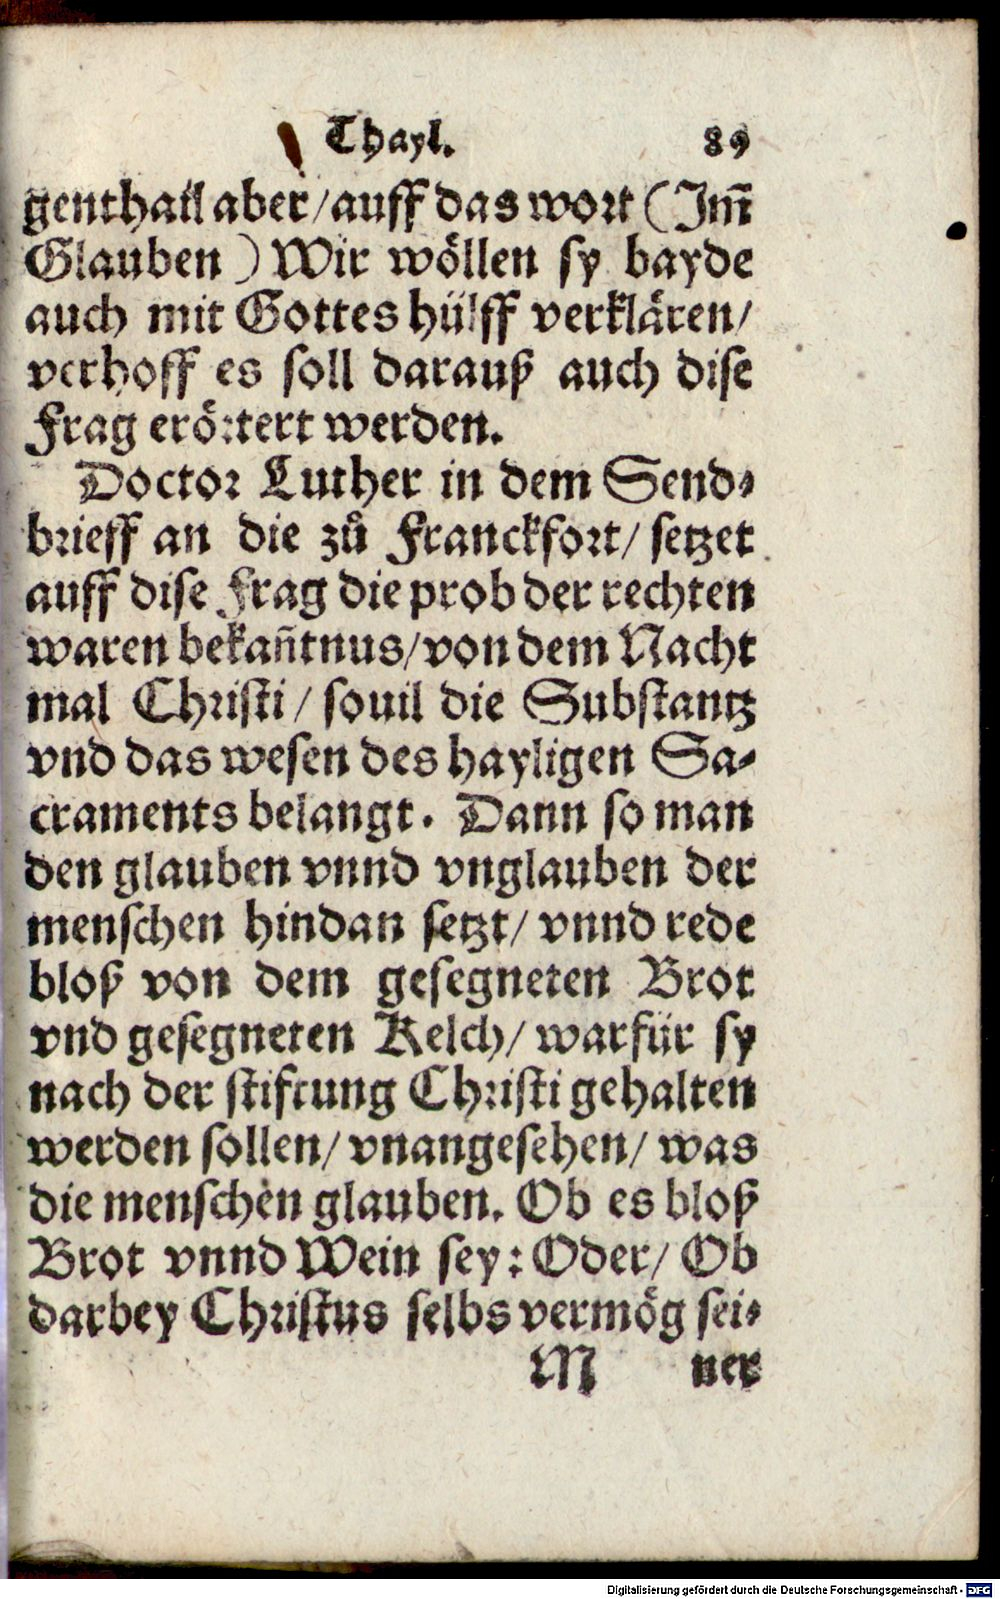 Thayl. 89
genthail aber/auff das wort (Im̃
Glauben) Wir wöllen sy bayde
auch mit Gottes hülff verklären/
verhoff es soll darauß auch dise
Frag erörtert werden.
Doctor Luther in dem Send⸗
brieff an die zů Franckfort/ setzet
auff dise Frag die prob der rechten
waren bekañtnus/von dem Nacht
mal Christi/ souil die Substantz
vnd das wesen des hayligen Sa⸗
craments belangt. Dann so man
den glauben vnnd vnglauben der
menschen hindan setzt/ vnnd rede
bloß von dem gesegneten Brot
vnd gesegneten Kelch/ warfür sy
nach der stifftung Christi gehalten
werden sollen/ vnangesehen/ was
die menschen glauben. Ob es bloß
Brot vnnd Wein sey: Oder/ Ob
darbey Christus selbs vermög sei⸗
M ner
Digitalisierung gefördert durch die Deutsche Forschungsgemeinschaft - DFG